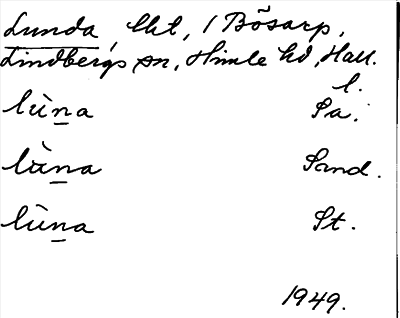 Lunda, lht, i Bösarp,
Lindbergs sn, Himle hd, Hall.
l.
lùna Pa.
lùna Sand.
lùna St.
1949.